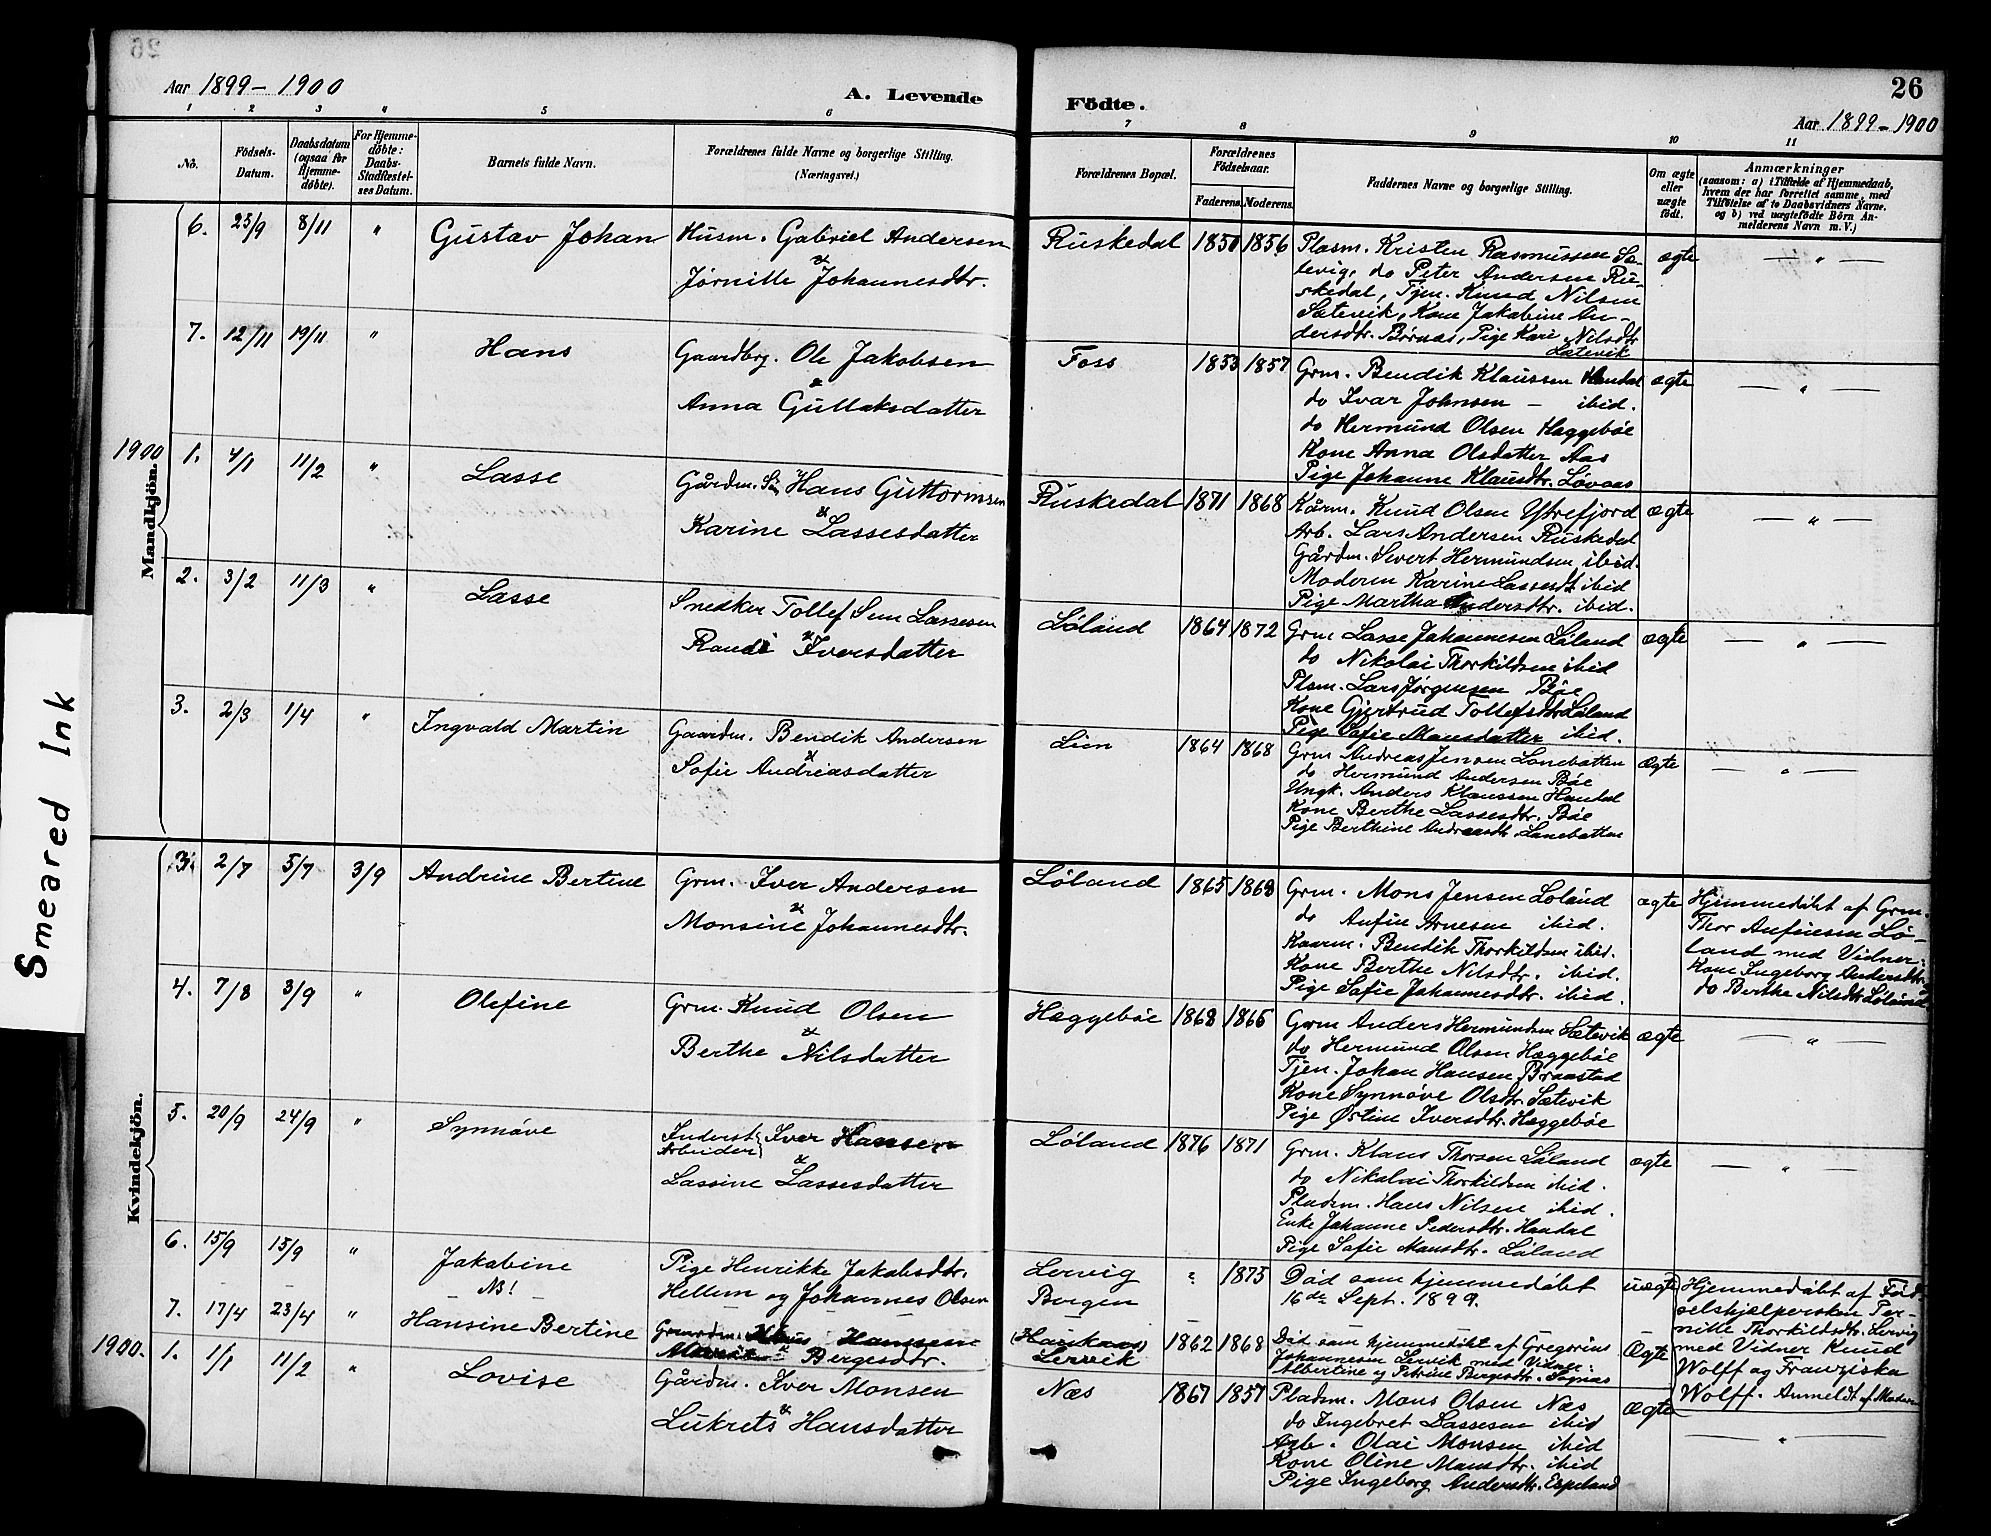 26
Aar 1899-1900
A. Levende
Födte.
26
Aar 1899-1900
1 2 3 4 5 6 7 8 9 10 11
No.
Födsels-Datum.
Daabsdatum (ogsaa for Hjemme-döbte).
For Hjemme-döbte: Daabs-Stadfæstel-ses Datum.
Barnets fulde Navn.
Forældrenes fulde Navne og borgerlige Stilling. (Næringsvei.)
Forældrenes Bopæl.
Forældrenes Födselsaar.
Faderens.
Moderens.
Faddernes Navne og borgerlige Stilling.
Om ægte eller uægte födt.
Anmærkninger
(saasom: a) i Tilfælde af Hjemmedaab, hvem der har forrettet samme, med Tilföielse af to Daabsvidners Navne, og b) ved uægtefödte Börn An-melderens Navn m. V.)
Mandkjön.
6. 25/9 8/11 " Gustav Johan
Husm. Gabriel Andersen
&
Jørnille Johannesdtr.
Ruskedal 1850 1856
Plasm. Kristen Rasmussen Sæ-
tevig, do Peter Andersen Ru-
skedal, Tjen. Knud Nilsen
Sætevik, Kone Jakabine An-
dersdtr. Børnæs, Pige Kari Nilsdtr
Sætevik
ægte — " —
7. 12/11 19/11 " Hans
Gaardbrg. Ole Jakobsen
&
Anna Gullaksdatter
Foss 1853 1857
Grm. Bendik Klaussen Handal
do Ivar Johnsen — ibid.
do Hermund Olsen Hæggebøe
Kone Anna Olsdatter Aas
Pige Johanne Klausdtr. Løvaas
ægte — " —
1900
1. 4/1 11/2 " Lasse
Gårdm. Sön Hans Guttormsen
&
Karine Lassesdatter
Ruskedal 1871 1868
Kårm. Knud Olsen Ytrefjord
Arb. Lars Andersen Ruskedal
Gårdm. Sivert Hermundsen, ibid.
Moderen Karine Lassesdt. ibid
Pige Martha Andersdtr. ibid.
ægte — " —
2. 3/2 11/3 " Lasse
Snedker Tollef Sem Lassesen
&
Randi Iversdatter
Løland 1864 1872
Grm Lasse Johannesen Løland
do Nikolai Thorkildsen ibid
Plsm. Lars Jørgensen Bøe
Kone Gjertrud Tollefsdtr Løland
Pige Sofie Mansdatter ibid.
ægte — " —
3. 2/3 1/4 " Ingvald Martin
Gaardm. Bendik Andersen
&
Sofie Andreasdatter
Lien 1864 1868
Grm Andreas Jensen Lanebatten
do Hermund Andersen Bøe
Ungk. Anders Klaussen Handal
Kone Berthe Lassesdtr. Bøe
Pige Berthine Andreasdt. Lanebatten
Ægte — " —
Kvindekjön.
3. 2/7 5/7 3/9 Andrine Bertine
Grm. Iver Andersen
&
Monsine Johannesdtr.
Løland 1865 1868
Grm. Mons Jensen Løland
do Anfin Arnesen ibid.
Kaarm. Bendik Thorkildsen ibid.
Kone Berthe Nilsdtr. ibid.
Pige Sofie Johannesdtr. ibid.
ægte
Hjemmedøbt af Grm.
Thor Anfinsen Lø-
land med Vidner:
Kone Ingeborg Andersdtr.
do Berthe Nilsdtr Løland
4. 7/8 3/9 " Olefine
Grm. Knud Olsen
&
Berthe Nilsdatter
Hæggebøe 1868 1865
Grm Anders Hermundsen Sætevik
do Hermund Olsen Hæggebøe
Tjen. Johan Hansen Braastad
Kone Synnøve Olsdtr. Sætevik
Pige Østine Iversdtr. Hæggebøe
ægte — " —
5. 20/9 24/9 " Synnøve
Inderst Arbeider Iver Hansen
&
Lassine Lassesdatter
Løland 1876 1871
Grm. Klaus Thorsen Løland
do Nikolai Thorkildsen ibid.
Pladsm. Hans Nilsen ibid.
Enke Johanne Pedersdtr. Handal
Pige Sofie Mansdtr. Løland
ægte — " —
6. 15/9 15/9 " Jakabine
NB!
Pige Henrikke Jakabsdtr.
Hellem og Johannes Olsen
Lervig
Borgen
1875
Død som hjemmedøbt
16de Sept. 1899.
uægte
Hjemmedøbt af Fød-
selshjælpersken Per-
nille Thorkildsdtr. Lervig
med Vidner Knud
Wolff og Franziska
Wolff. Anmeldt af Moderen
7. 17/4 23/4 " Hansine Bertine
Gaardm. Hanssen
& Bergesdtr.
Lervik
1862 1868
Død som hjemmedøbt af Gregorius
Johannesen Lervik med Vidner:
Albertine og Petrine Bergesdtr.
Ægte
1900.
1. 1/1 11/2 " Lovise
Gårdm. Iver Monsen
&
Lukrets Hansdatter
Næs 1867 1857
Pladsm. Mons Olsen Næs
do Ingebret Lassesen ibid
Arb. Olai Monsen ibid
Kone Oline Mansdtr. ibid
Pige Ingeborg Andersdtr. Espeland
Ægte — " —
Smeared Ink